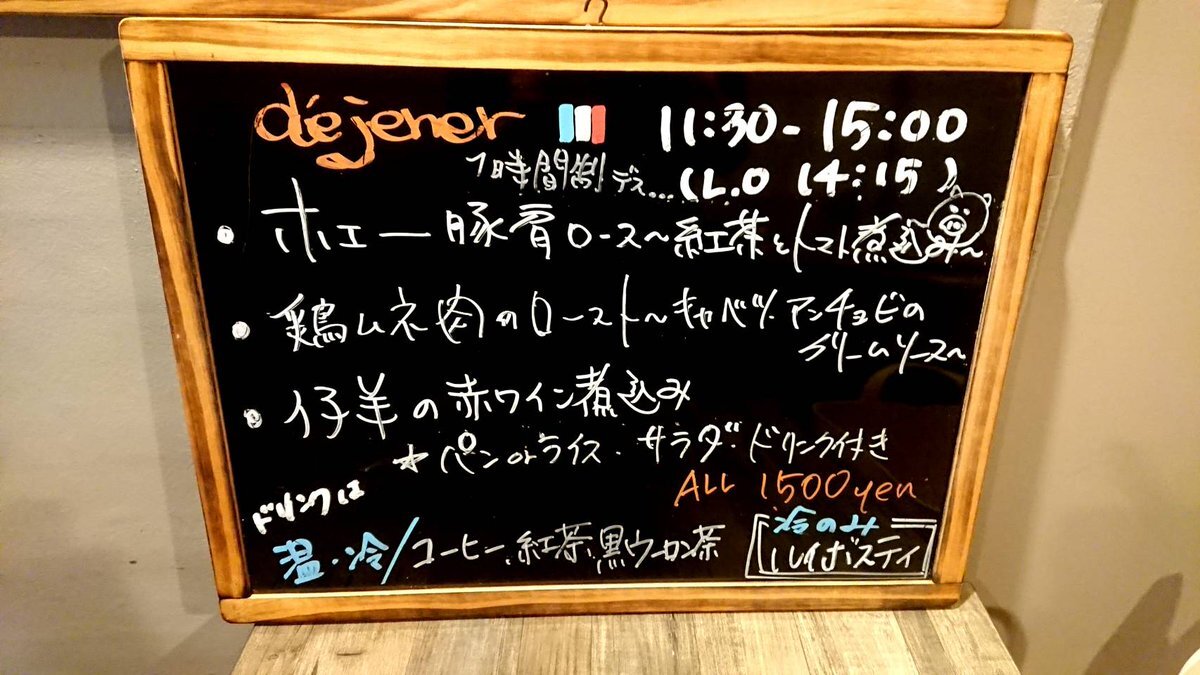 déjener 11:30-15:00
1時間制デス... (L.O 14:15)
• ホエー豚肩ロース〜紅茶とトマト煮込み〜
• 鶏ムネ肉のロースト〜キャベツ・アンチョビの
クリームソース〜
• 仔羊の赤ワイン煮込み
★パンorライス・サラダ・ドリンク付き
ALL 1500yen
ドリンクは
温・冷/コーヒー、紅茶、黒ウーロン茶
冷のみ
ルイボスティ